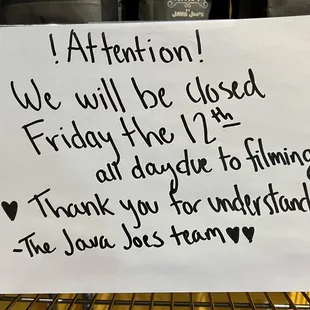 JAVA Joe's
! Attention!
We will be closed
Friday the 12th
all day due to filming
♥ Thank you for understand
-The Java Joes team ♥♥